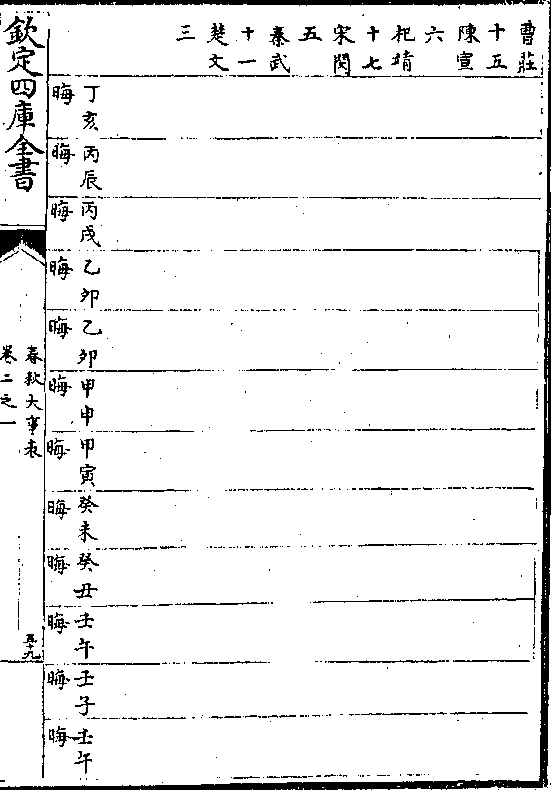 曹莊
十五
陳宣
六
杞靖
十七
宋閔
五
秦武
十一
楚文
三
丁亥
晦
丙辰
晦
丙戌
晦
乙卯
晦
乙卯
晦
甲申
晦
甲寅
晦
癸未
晦
癸丑
晦
壬午
晦
壬子
晦
壬午
晦
欽定四庫全書
春秋大事表
卷二之一
五十九